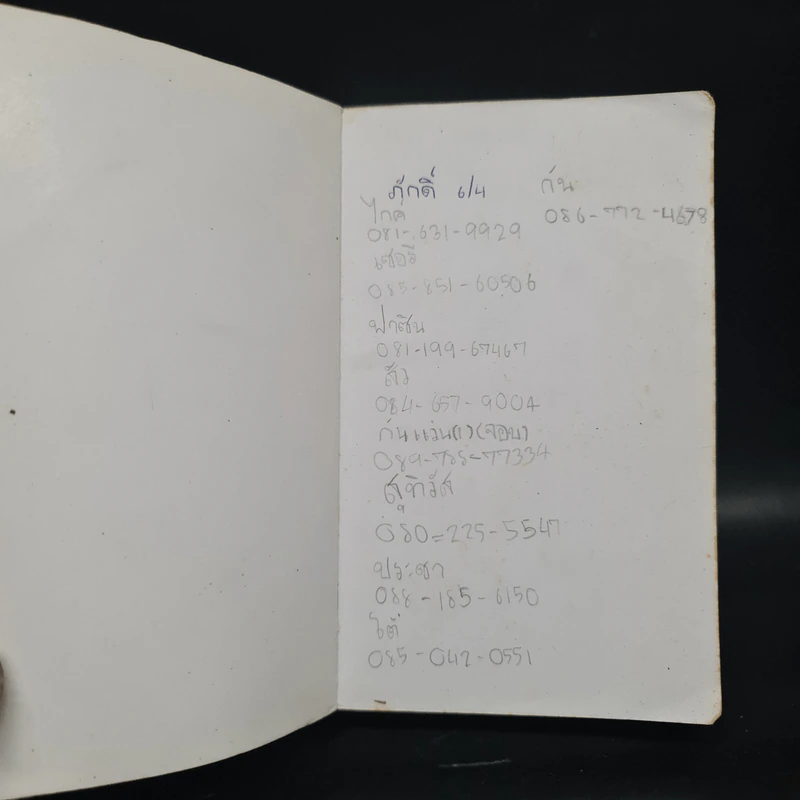 ภักดิ์ 6/4
กัน
086-772-4678
ไกด์
081-631-9929
เชอรี่
085-851-60506
ฟาซิน
081-199-67467
สัว
084-657-9004
กันแว่นตา(จอบ)
089-785-77334
สุทิวัส
080=225-5547
ประชา
088-185-6150
ไต้
085-042-0551